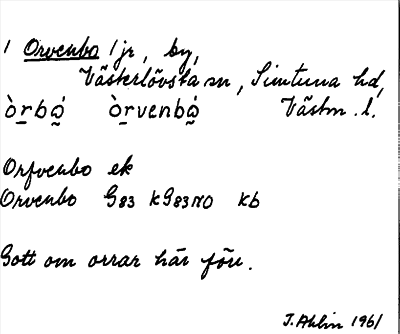 1 Orvenbo 1 jr, by,
Västerlövsta sn, Simtuna hd,
òrbó̰ òrvenbó̰ Västm. l.
Orfvenbo ek
Orvenbo G83 kG83NO kb
Gott om orrar här förr.
J. Ahlin 1961